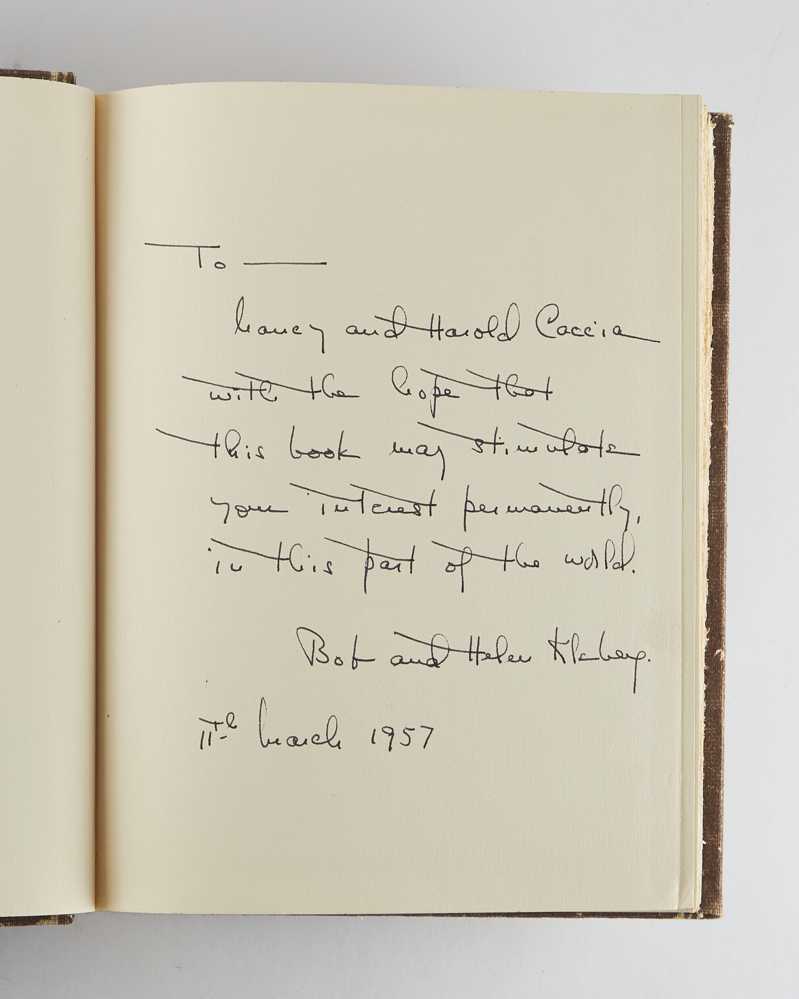 To —
Nancy and Harold Caccia
with the hope that
this book may stimulate
your interest permanently,
in this part of the world.
Bob and Helen Kleberg.
11th March 1957